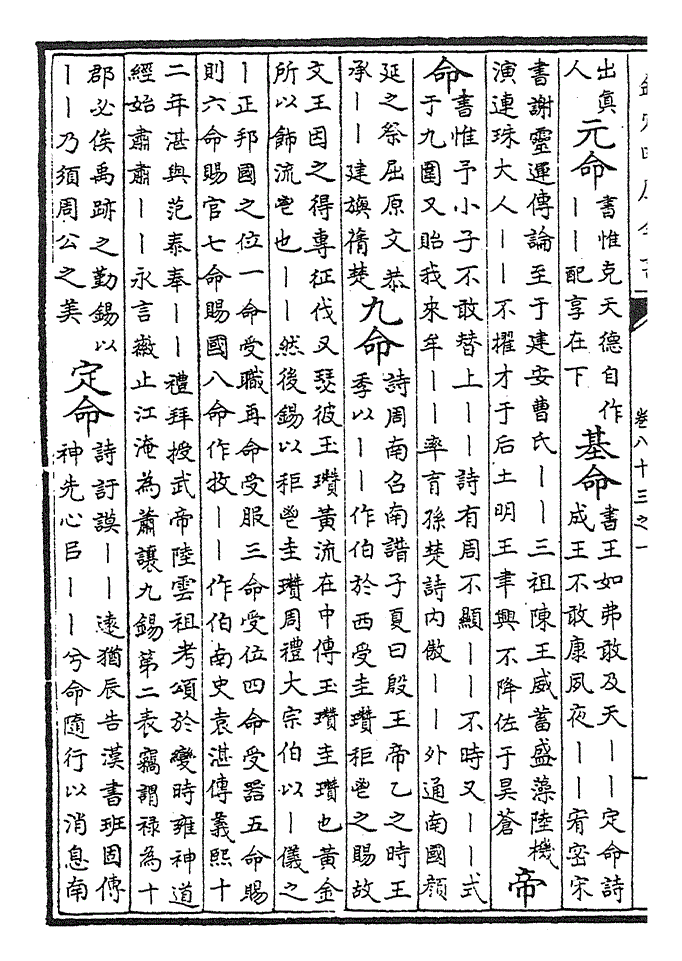 欽定四庫全書
卷八十三之一
出真
人
元命
書惟克天德自作
――配享在下
基命
書王如弗敢及天――定命詩
成王不敢康夙夜――宥密宋
書謝靈運傳論至于建安曹氏――三祖陳王威蓄盛藻陸機
演連珠大人――不擢才于后土明王聿興不降佐于昊蒼
帝
命
書惟予小子不敢替上――詩有周不顯――不時又――式
于九圍又貽我來牟――率育孫楚詩内傲――外通南國顔
延之祭屈原文恭
承――建旟舊楚
九命
詩周南召南譜子夏曰殷王帝乙之時王
季以――作伯於西受圭瓚秬鬯之賜故
文王因之得專征伐又瑟彼玉瓚黄流在中傳玉瓚圭瓚也黄金
所以飾流鬯也――然後錫以秬鬯圭瓚周禮大宗伯以―儀之
―正邦國之位一命受職再命受服三命受位四命受器五命賜
則六命賜官七命賜國八命作牧――作伯南史袁湛傳義熙十
二年湛與范泰奉――禮拜授武帝陸雲祖考頌於變時雍神道
經始肅肅――永言薇止江淹為蕭讓九錫第二表竊謂禄為十
郡必俟禹跡之勤錫以
――乃須周公之美
定命
詩訏謨――逺猶辰告漢書班固傳
神先心㠯――兮命隨行以消息南